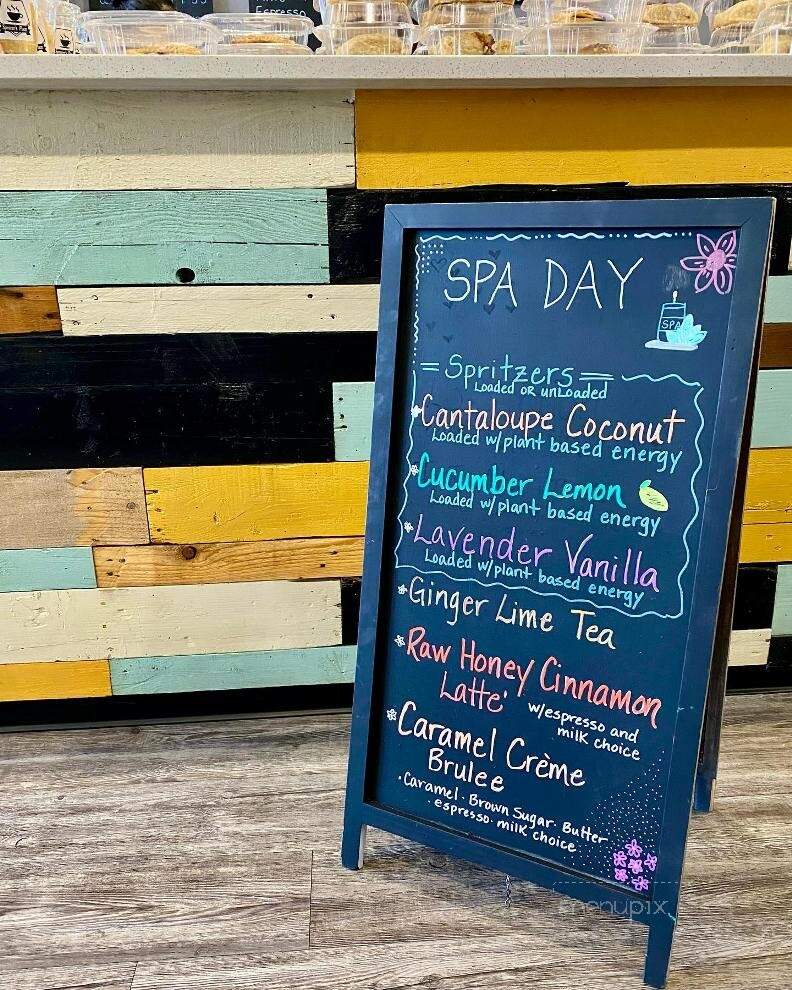 Espresso
SPA DAY
SPA
= Spritzers =
Loaded OR unLoaded
Cantaloupe Coconut
Loaded w/plant based energy
Cucumber Lemon
Loaded w/plant based energy
Lavender Vanilla
Loaded w/plant based energy
Ginger Lime Tea
Raw Honey Cinnamon
Latte'
w/espresso and
milk choice
Caramel Crème
Brulee
· Caramel · Brown Sugar · Butter
· espresso · milk choice
menupix